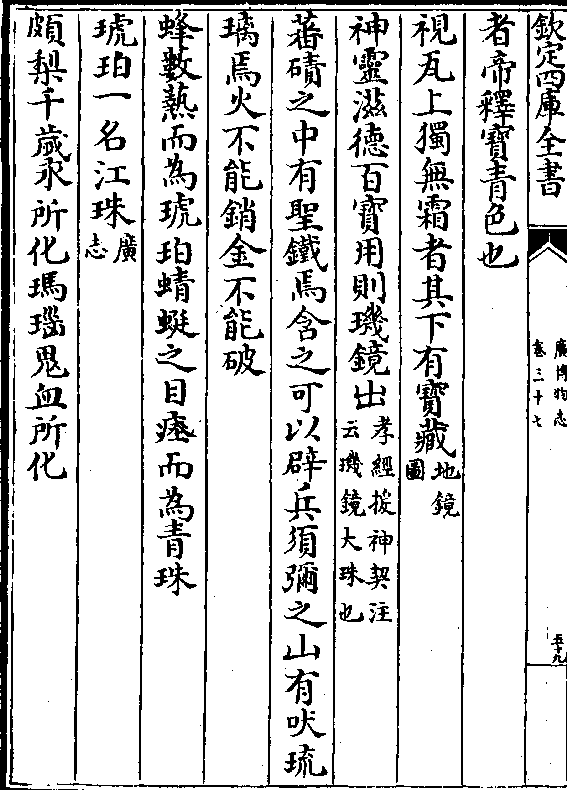 欽定四庫全書
廣博物志
卷三十七
五十九
者帝釋寶青色也
視瓦上獨無霜者其下有寶藏地鏡圖
神靈滋德百寶用則璣鏡出孝經援神契注云璣鏡大珠也
蕃磧之中有聖鐵焉含之可以辟兵須彌之山有吠琉
璃焉火不能銷金不能破
蜂數熱而為琥珀蜻蜓之目瘞而為青珠
琥珀一名江珠廣志
頗黎千歲氷所化瑪瑙鬼血所化